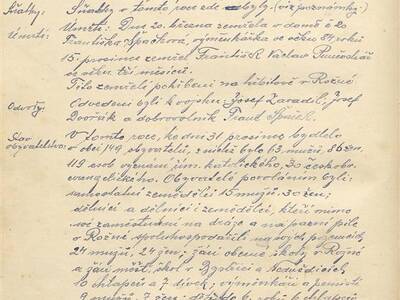 Sňatky: Sňatky v tomto roce zde nebyly. (viz poznámky)
Úmrtí: Úmrtí: Dne 20. března zemřela v domě č. 20
Františka Špačková, výměnkářka ve věku 84 roků
15. prosince zemřel František Václav
ve věku tří měsíců.
Tito zemřelí pohřbeni na hřbitově v Rožné
Odvody: Odvedeni byli k vojsku: Josef Zavadil, Josef
Dvořák a dobrovolník
Stav
obyvatelstva: V tomto roce, ke dni 31. prosince bydlelo
v obci 149 obyvatelů, z nichž bylo 63 mužů, 86 žen
119 osob vyznání řím. katolického, 30 českobr.
evangelického. Obyvatelé povoláním byli:
samostatní zemědělci 15 mužů 30 žen;
dělníci a dělnice i zemědělci, kteří mimo
své zaměstnání na dráze a na parní pile
v Rožné spoluhospodařili na svých
24 mužů, 24 žen; žáci obecné školy v Rožné
a žáci měšť. škol v Bystřici a Nedvědicích
10 chlapců a 7 dívek; výměnkáři a pensisté
mužů, 7 žen; dítek do 6 roků 6 chlapců